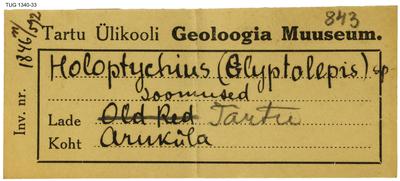 TUG 1340-33
843
Tartu Ülikooli Geoloogia Muuseum.
Inv. nr. 1846
Holoptychius (Glyptolepis) sp
soomused
Lade Old Red Tartu
Koht Aruküla